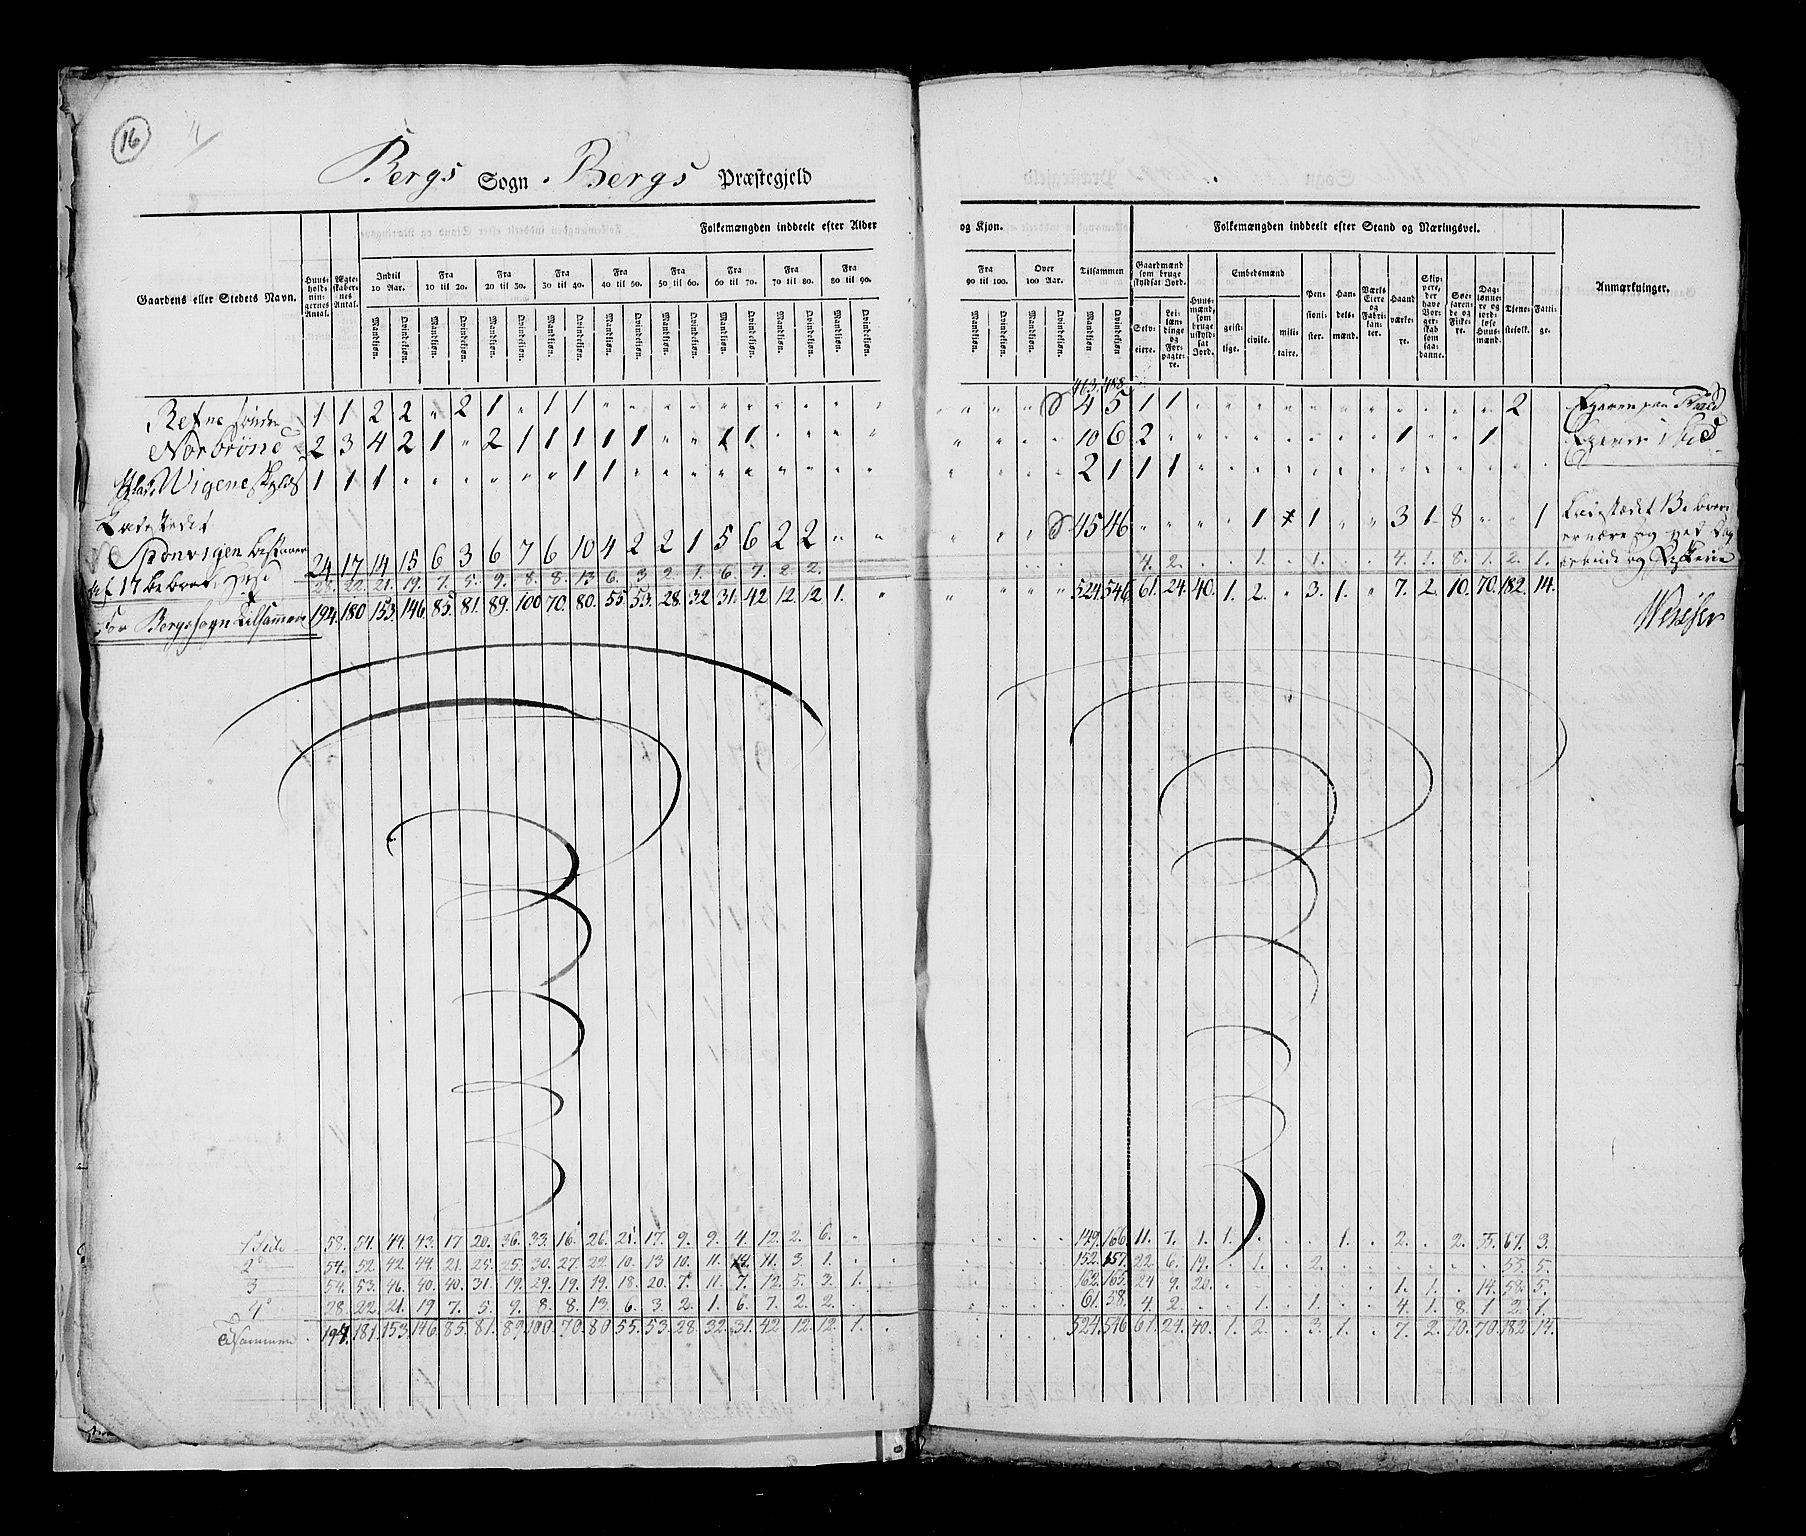 16
Bergs Sogn Bergs Præstegjeld
Gaardens eller Stedets Navn. Huusholdningernes Antal. Ægteskabernes Antal. Folkemængden inddeelt efter Alder og Kjøn. Tilsammen Folkemængden inddeelt efter Stand og Næringsvei. Anmærkninger.
Indtil 10 Aar. Fra 10 til 20. Fra 20 til 30. Fra 30 til 40. Fra 40 til 50. Fra 50 til 60. Fra 60 til 70. Fra 70 til 80. Fra 80 til 90. Fra 90 til 100. Over 100 Aar.
Mandkiøn. Qvindekiøn. Mandkiøn. Qvindekiøn. Mandkiøn. Qvindekiøn. Mandkiøn. Qvindekiøn. Mandkiøn. Qvindekiøn. Mandkiøn. Qvindekiøn. Mandkiøn. Qvindekiøn. Mandkiøn. Qvindekiøn. Mandkiøn. Qvindekiøn. Mandkiøn. Qvindekiøn. Mandkiøn. Qvindekiøn. Mandkiøn. Qvindekiøn.
Gaardmænd som bruge skyldsat Jord. Selveiere. Leilændinge og Forpagtere. Huusmænd, som bruge uskyldsat Jord. Embedsmænd geistlige. civile. militaire. Pensionister. Handelsmænd. Værkseiere og Fabrikanter. Haandværkere. Skippere, der have Borgerskab som saadanne. Søefarende og Fiskere. Daglønnere og jordløse Huusmænd. Tjenestefolk. Fattige.
463. 488.
Refne søndre 1 1 2 2 " 2 1 " 1 1 " " " " " " " " 4 5 1 1 2
Nørbrønd 2 3 4 2 1 " 2 1 1 1 1 1 " " 1 1 " " 10 6 2 1 1
Wigene 1 1 1 " " " " " " 1 1 " " " " " " 2 1 1 1
Ladestedet
Spønvigen 24 17 14 15 6 3 6 7 6 10 4 2 2 1 5 6 2 2 " " 45 46 " " " " 1 1 " " 3 1 8 " " 1
28. 22. 21. 19. 7. 5. 9. 8. 8. 13 6. 3 2. 1. 6. 7. 2. 2. 4. 2. 1. 1. 4. 1. 8. 1. 2. 1.
for Bergs sogn Tilsammen 194. 180 153. 146. 85. 81. 89. 100 70. 80. 55. 53. 28. 32. 31. 42 12. 12. 1. " 524. 546 61. 24. 40. 1. 2. 3. 1. " 7. 2. 10. 70. 182. 14.
1 Side 58. 54. 44. 43. 17 20. 36. 33. 16. 26. 21. 17. 9. 9. 4. 12. 2. 6. 149. 166. 11. 7. 1. 1. 1. 2. 2. 55. 67. 3.
2 54. 52. 42. 44. 21. 25. 25. 30. 27. 22 10. 13 10. 11. 14. 11. 3. 1. 152. 157. 22. 6. 19. 1. 2. 55. 5.
3 54. 53. 46. 40. 40. 31. 19. 29. 19. 19. 18. 20. 7. 11. 7. 12. 5. 3. 1. 162. 165. 24 9. 20. 1. 1. 14. 58. 5.
4 28. 22. 21. 19 7. 5. 9. 8. 8. 13. 6. 3. 2. 1. 6. 7. 2. 2. 61. 58. 4. 2. 1. 1. 4. 1. 8. 1 2. 1.
Tilsammen 194. 181. 153. 146. 85. 81. 89. 100. 70. 80 55. 53. 28. 32. 31. 42 12. 12. 1. 524. 546 61. 24. 40. 1. 2. 3. 1. 7. 2. 10. 70. 182. 14.